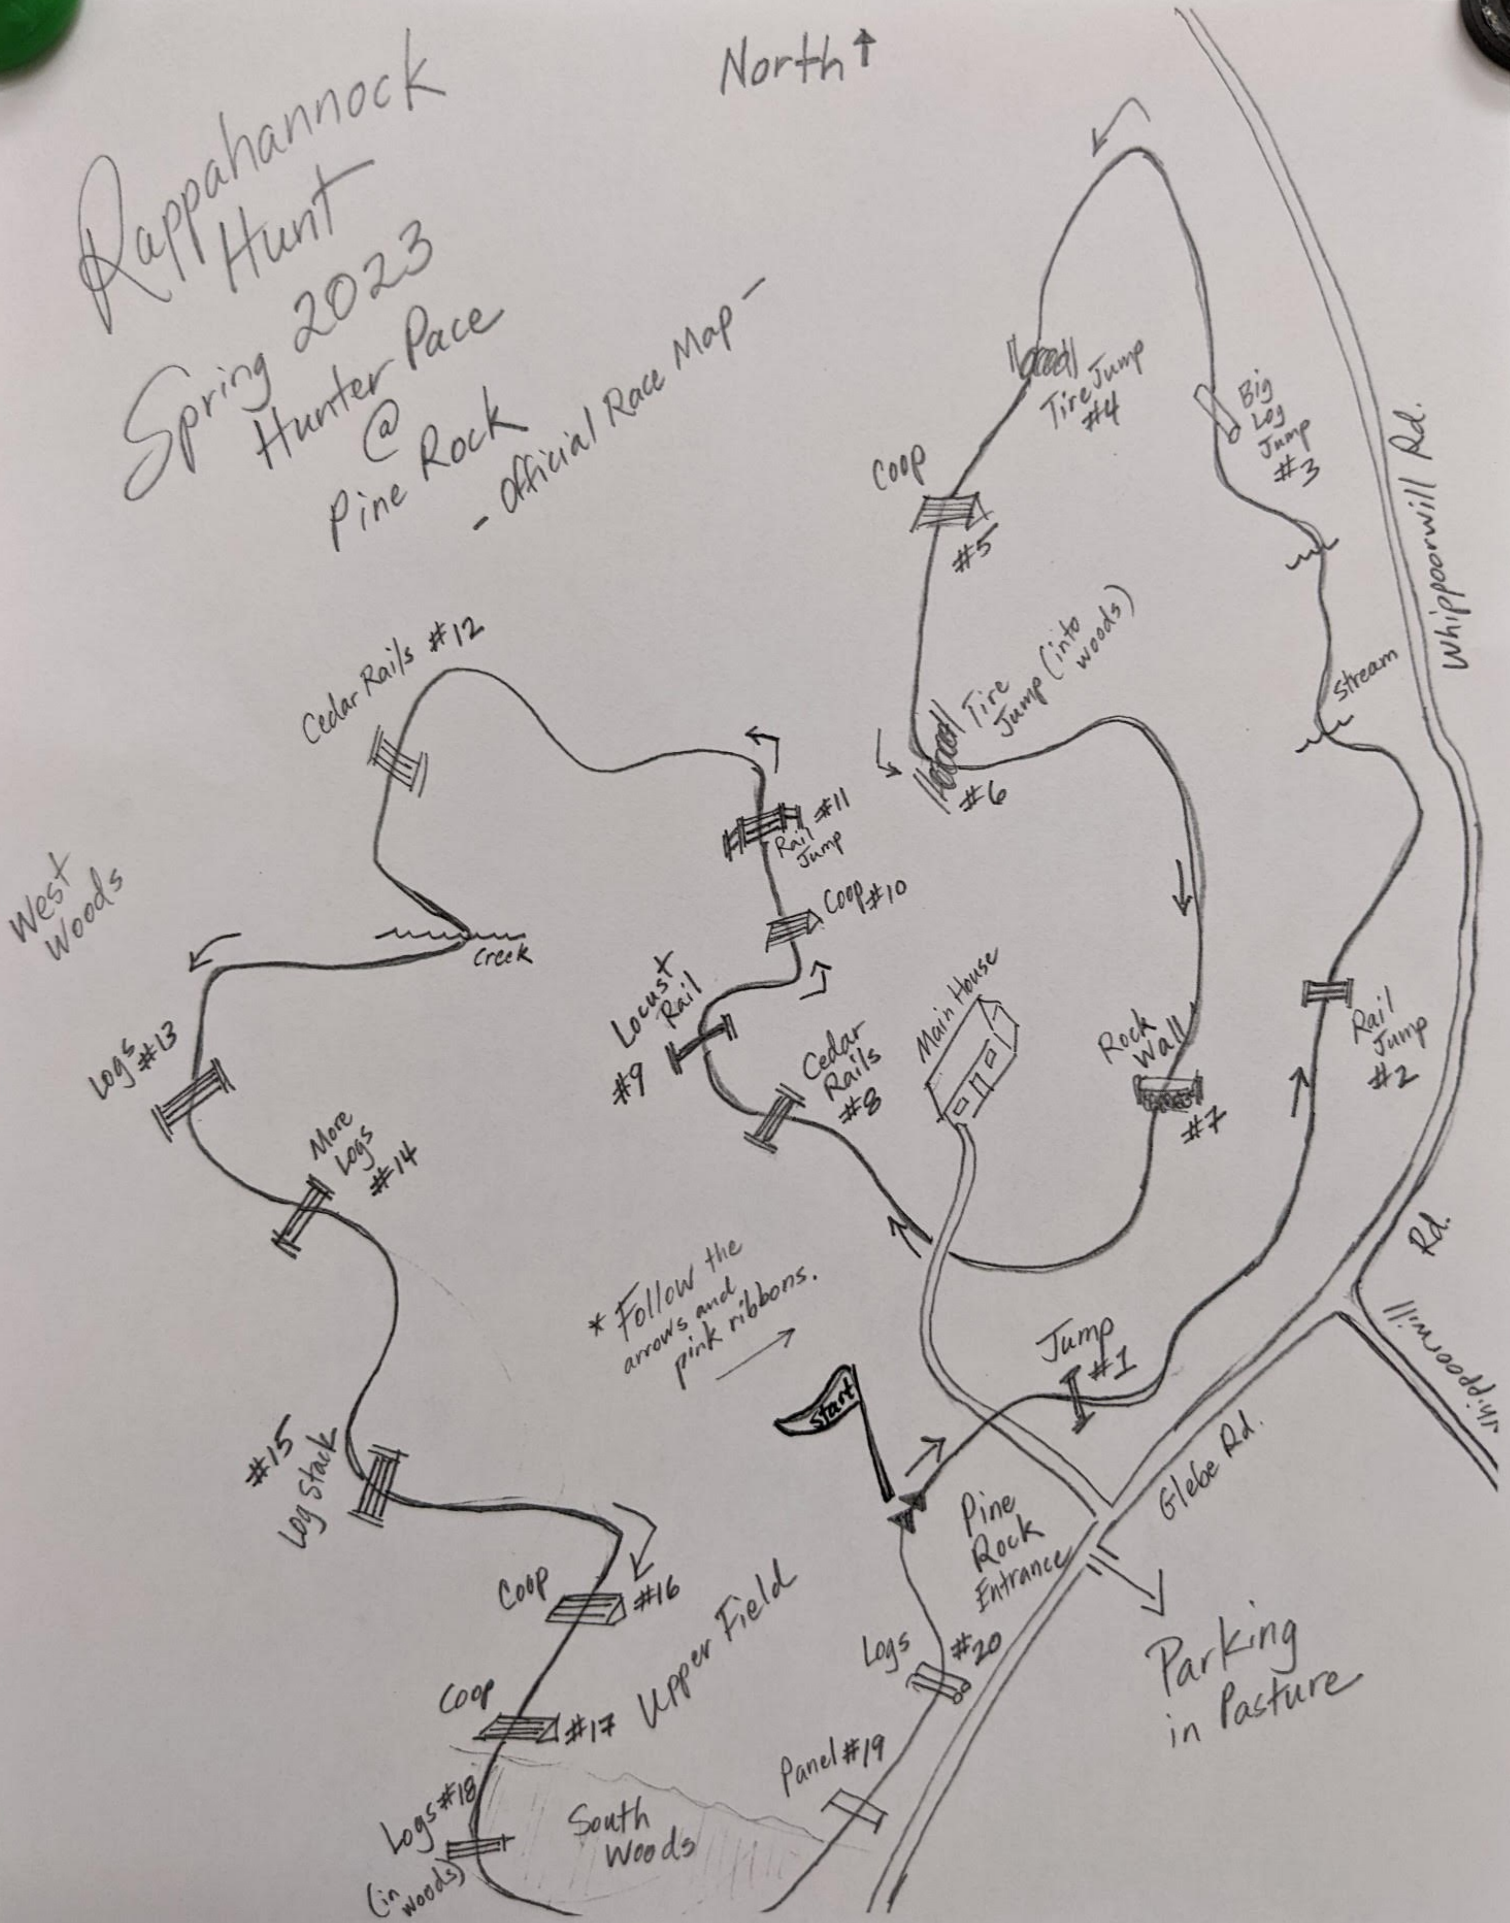 North ↑
Rappahannock
Hunt
Spring 2023
Hunter Pace
@
Pine Rock
- Official Race Map -
Big
Log
Jump
#3
Tire Jump
#4
Coop
#5
Whippoorwill Rd.
Stream
Tire
Jump (into
woods)
#6
Cedar Rails #12
#11
Rail
Jump
Coop #10
West
Woods
Creek
Locust
Rail
#9
Main House
Cedar
Rails
#8
Rock
Wall
#7
Rail
Jump
#2
Logs #13
More
Logs
#14
* Follow the
arrows and
pink ribbons.
Rd.
Whippoorwill
Jump
#1
Start
Glebe Rd.
#15
Log Stack
Pine
Rock
Entrance
Coop
#16
Upper Field
Logs
#20
Parking
in Pasture
Coop
#17
Panel #19
Logs #18
(in
woods)
South
Woods